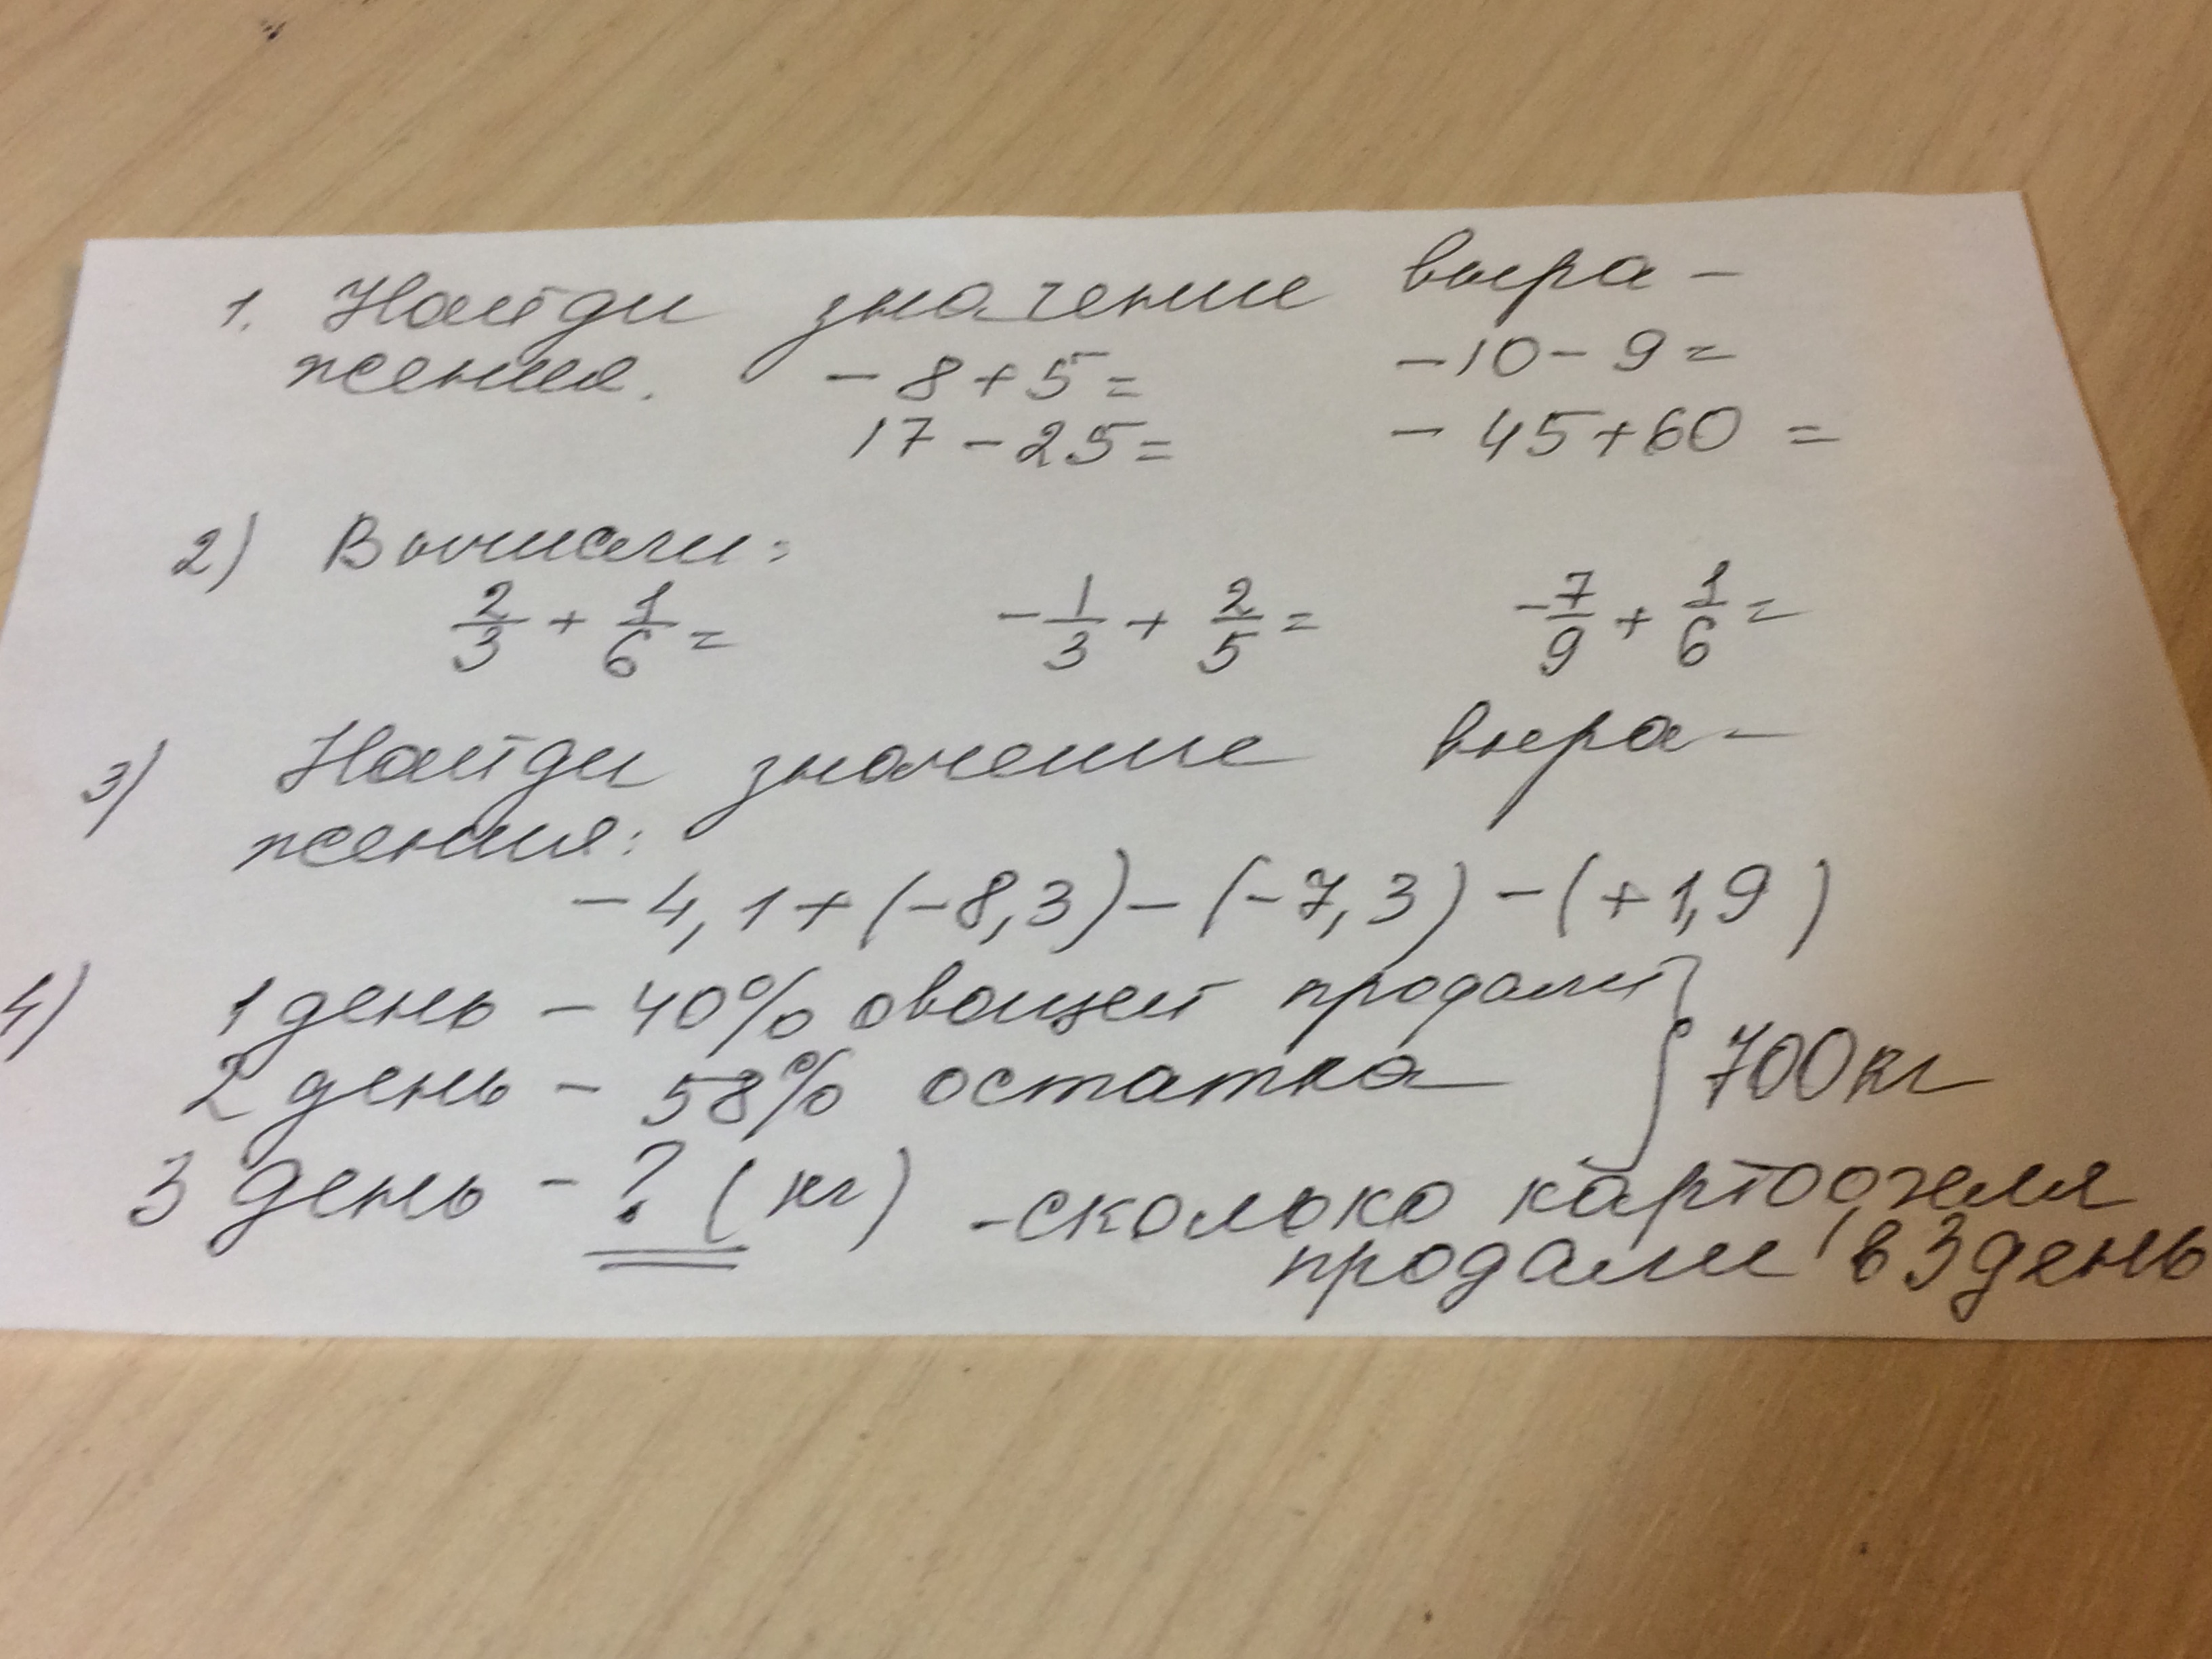 1. Найди значение выра-
жения. -8+5= -10-9=
17-25= -45+60=
2) Вычисли:
2/3 + 1/6 = -1/3 + 2/5 = -7/9 + 1/6 =
3) Найди значение выра-
жения:
-4,1+(-8,3)-(-7,3)-(+1,9)
4) 1 день - 40% овощей продали
2 день - 58% остатка } 700 кг
3 день - ? (кг) - сколько картофеля
продали в 3 день